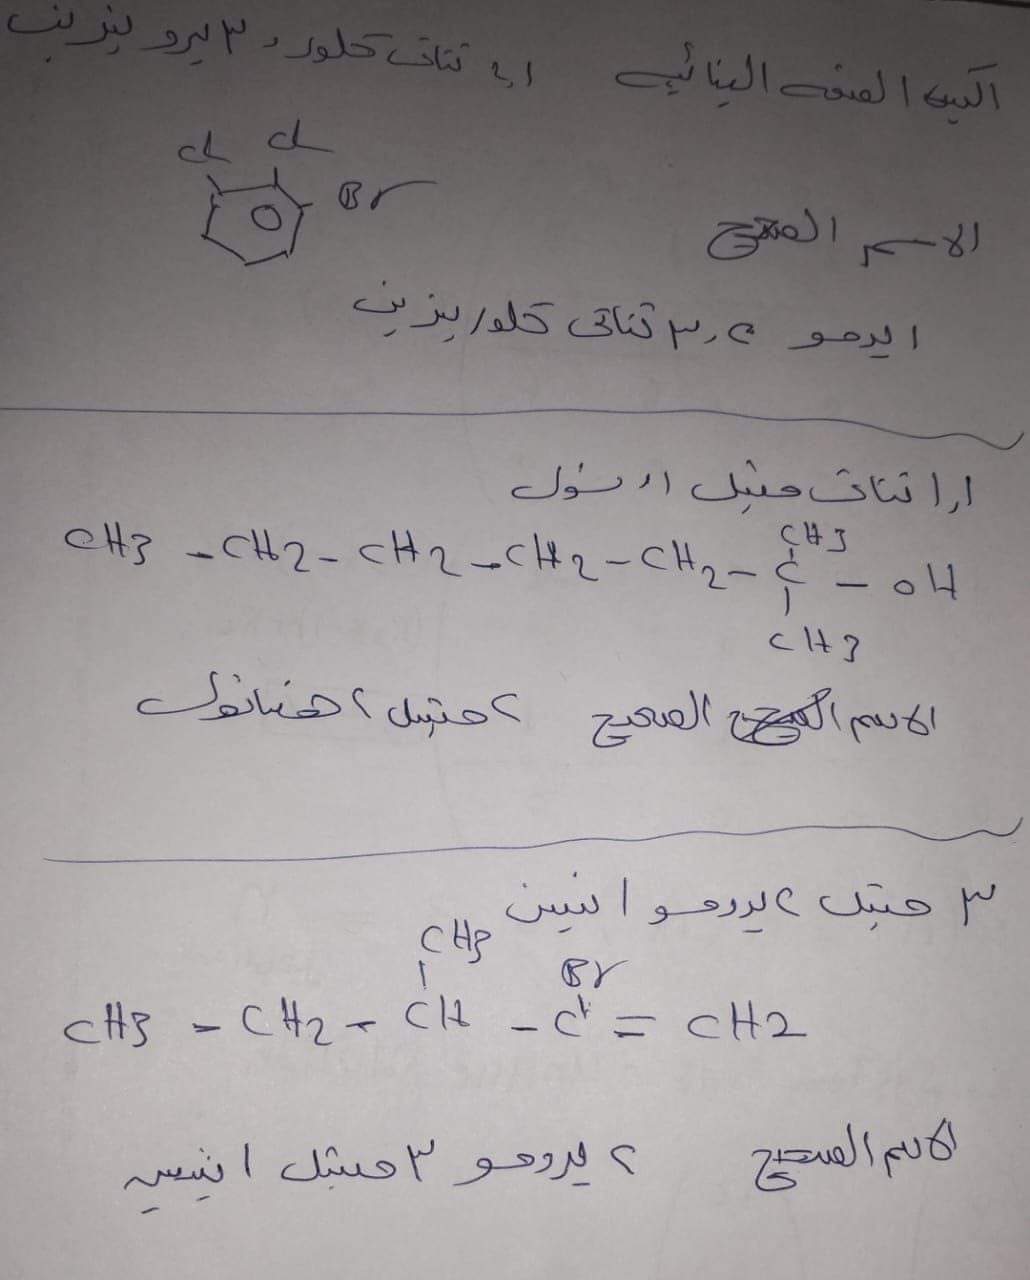 اكتب الصيغه البنائيه ١، ٢ ثنائى كلور، ٣ برو بنزين
Cl Cl
Br
الاسم الصحيح
١ برمو ٢، ٣ ثنائى كلور بنزين
١، ١ ثنائى ميثيل ١
CH3
CH3 - CH2 - CH2 - CH2 - CH2 - C - OH
CH3
الاسم الصحيح ٢ ميثيل ٢ هبتانول
٣ ميثيل ٢ برومو ١ بنتين
CH3 Br
CH3 - CH2 - CH - C = CH2
الاسم الصحيح ٢ برومو ٣ ميثيل ١ بنتين